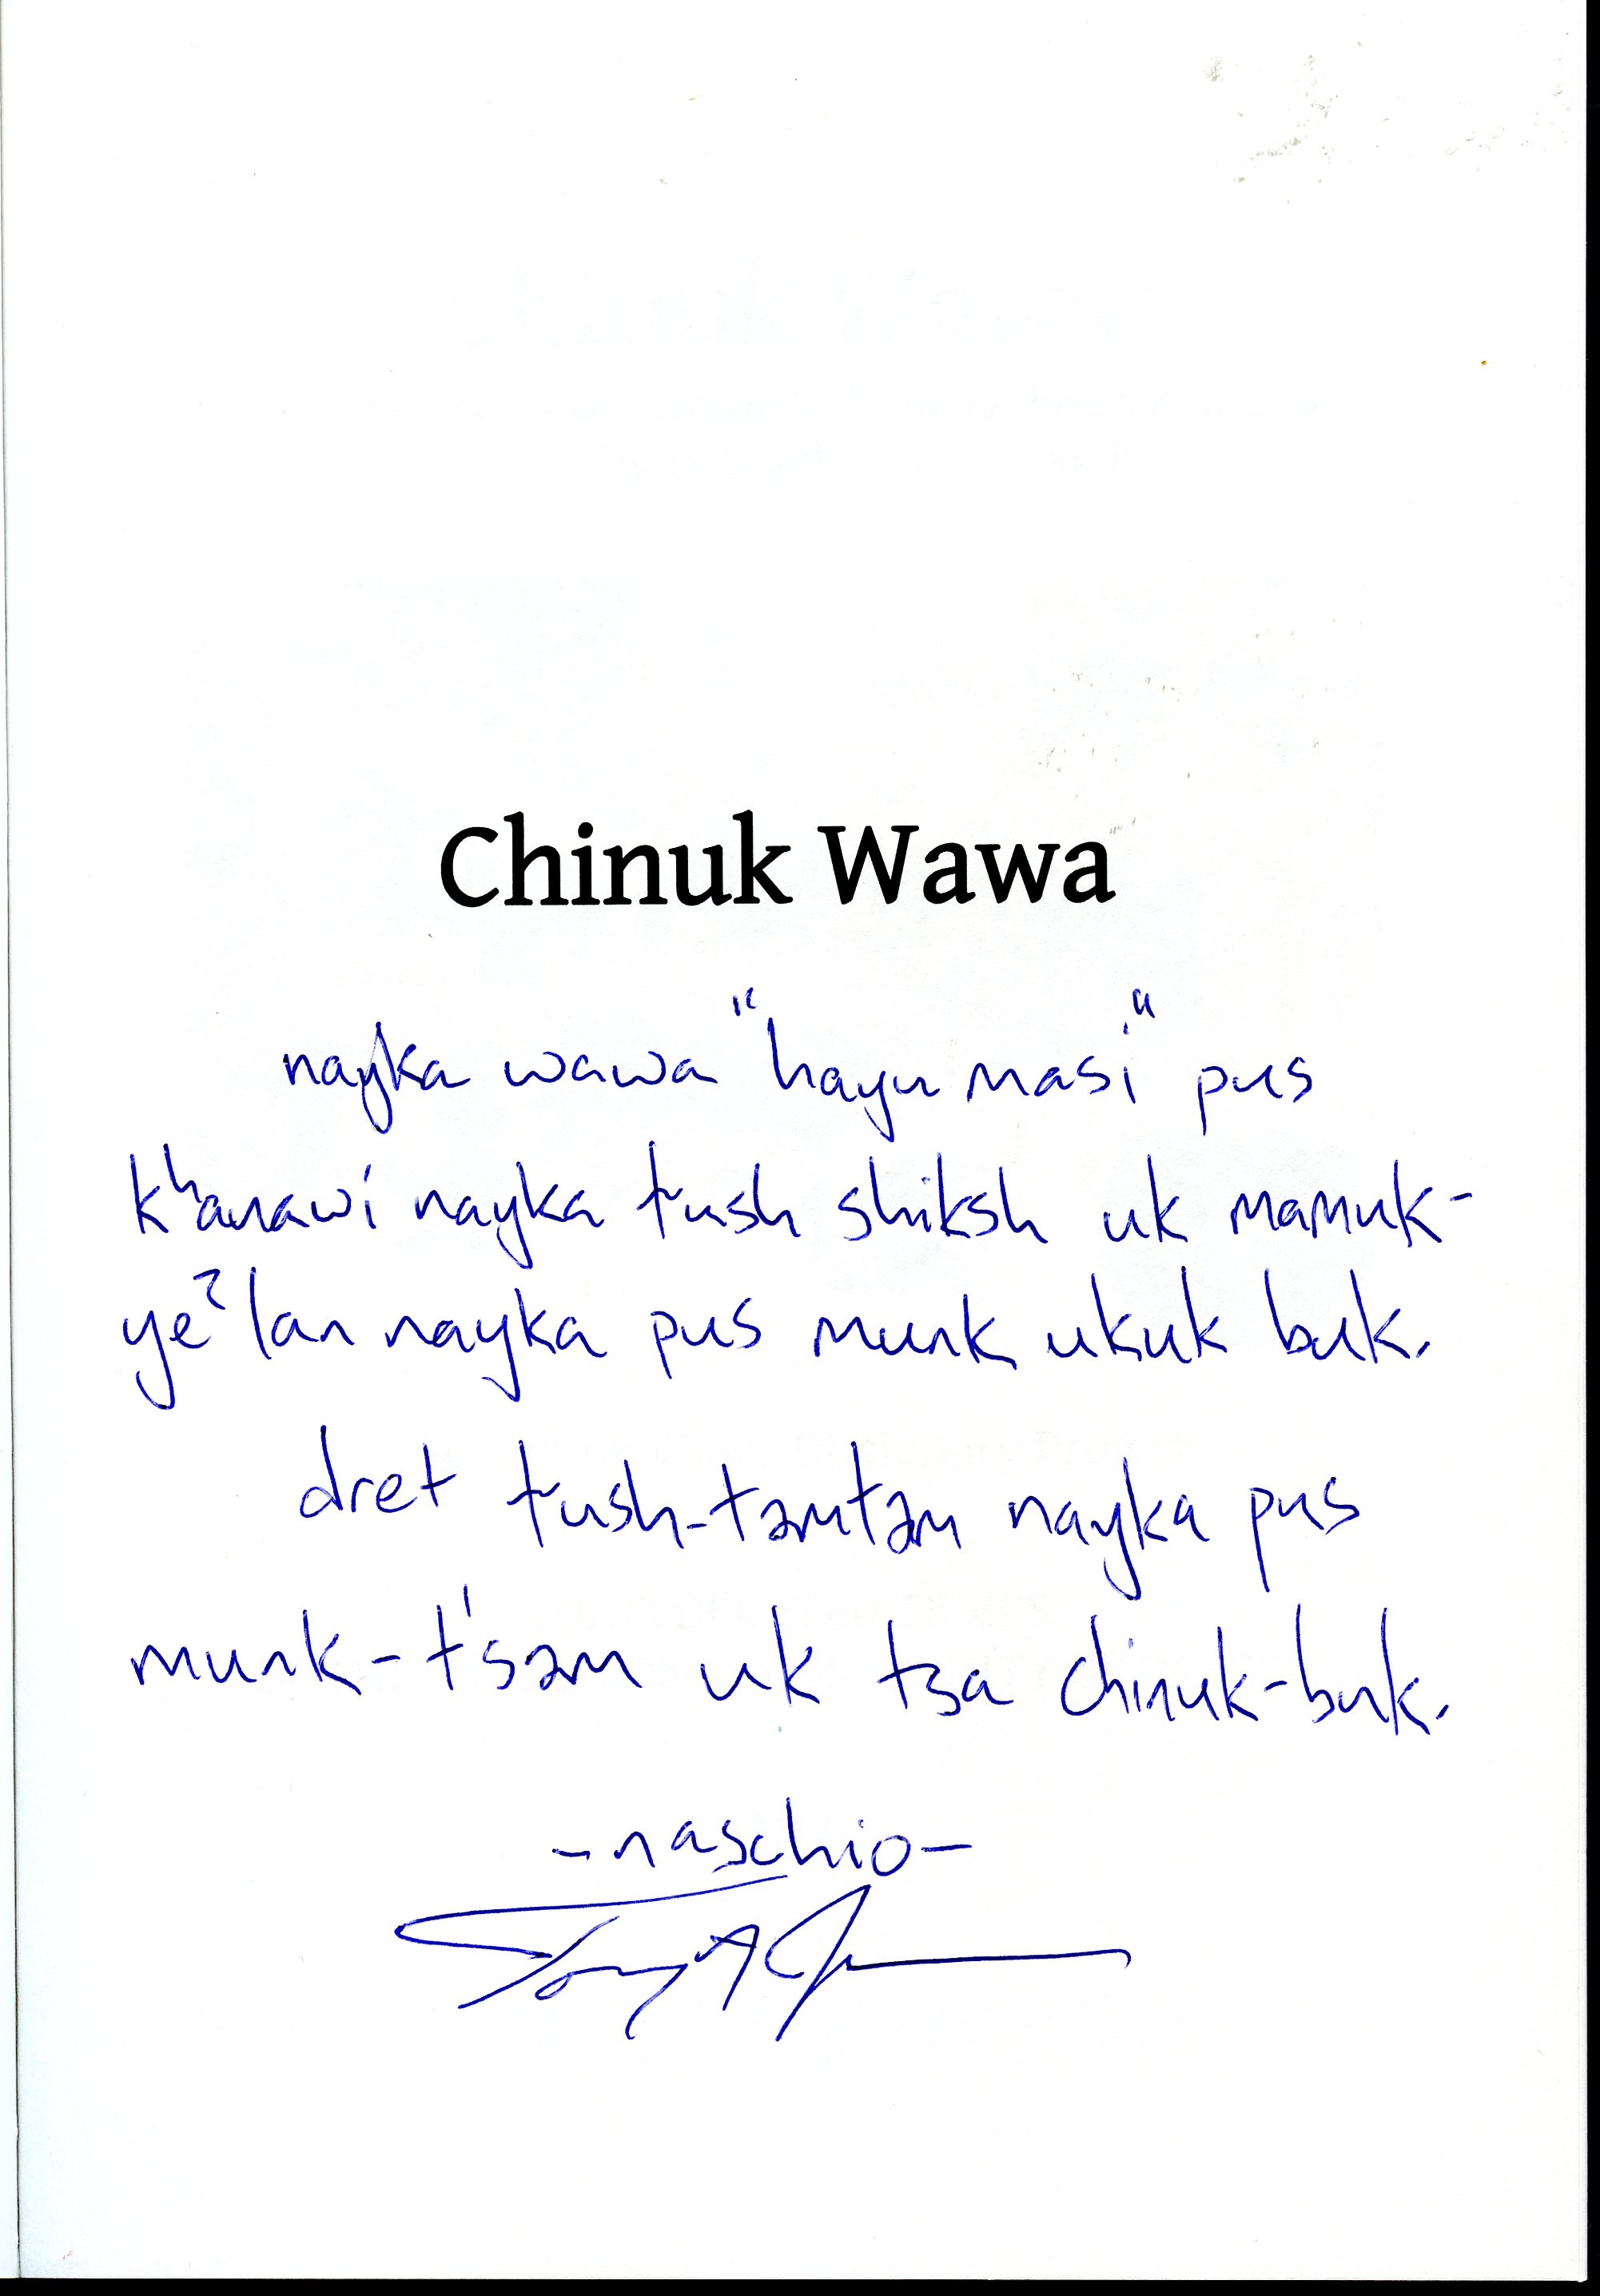 Chinuk Wawa
nayka wawa "hayu masi" pus
kʰanawi nayka ɬush shiksh uk mamuk-
yeʔlan nayka pus munk ukuk buk.
dret ɬush-təmtəm nayka pus
munk-t'səm uk chinuk-buk.
-naschio-